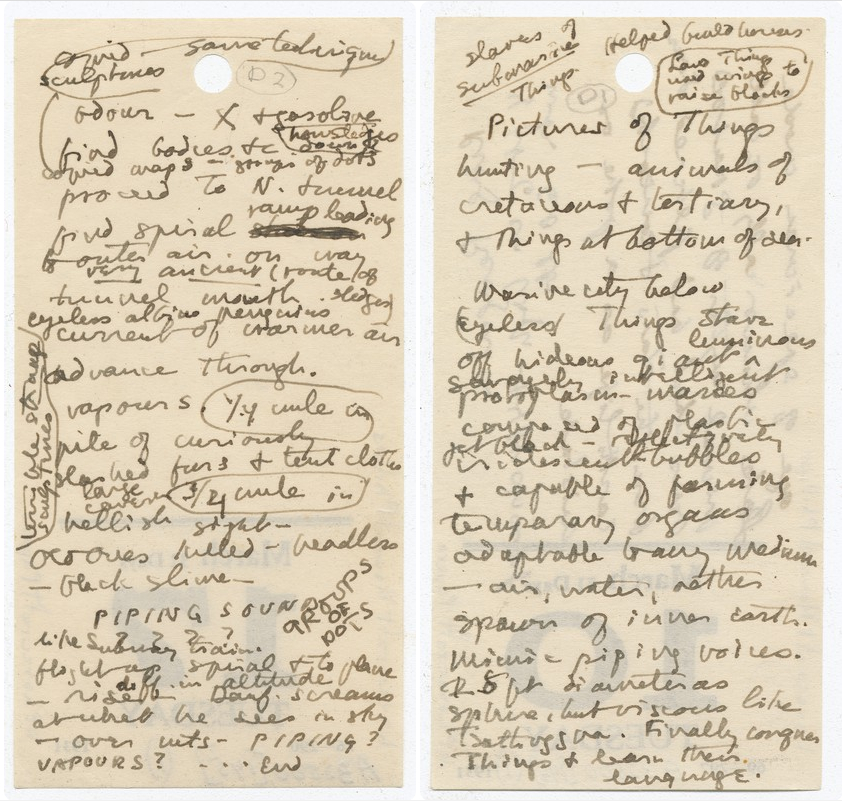 sculptures
same technique
D2
odour — X + gasoline
find bodies &c
proceed to N. tunnel
ramp leading
find spiral
to outer air. on way
very ancient (route of
sledges)
tunnel mouth.
eyeless albino penguins
current of warmer air
advance through.
vapours. 1/4 mile in
pile of curiously
slashed furs & tent cloths
large
cavern
3/4 mile in
hellish sight —
old ones killed — headless
— black slime —
PIPING SOUND
? ? ? ?
GROUPS
OF
DOTS
like Subway train.
flight up spiral & to plane
diff. in altitude
— rise — Danf. screams
at what he sees in sky
— over mts — PIPING?
VAPOURS? - - . . End
sculptures
slaves of
submarine
Things
Helped build houses.
Land Things
used wings to
raise blocks
D1
Pictures of Things
hunting — animals of
cretaceous & tertiary,
& Things at bottom of sea.
Massive city below
(eyeless) Things starve
luminous
off hideous giant
savagely intelligent
protoplasm — masses
composed of plastic
jet black — reflectively
iridescent bubbles
& capable of forming
temporary organs
adaptable to any medium
— air, water, aether
spawn of inner earth.
Mimic piping voices.
15 ft diameter as
sphere, but viscous like
Tsathoggua. Finally conquer
Things & learn their
language.